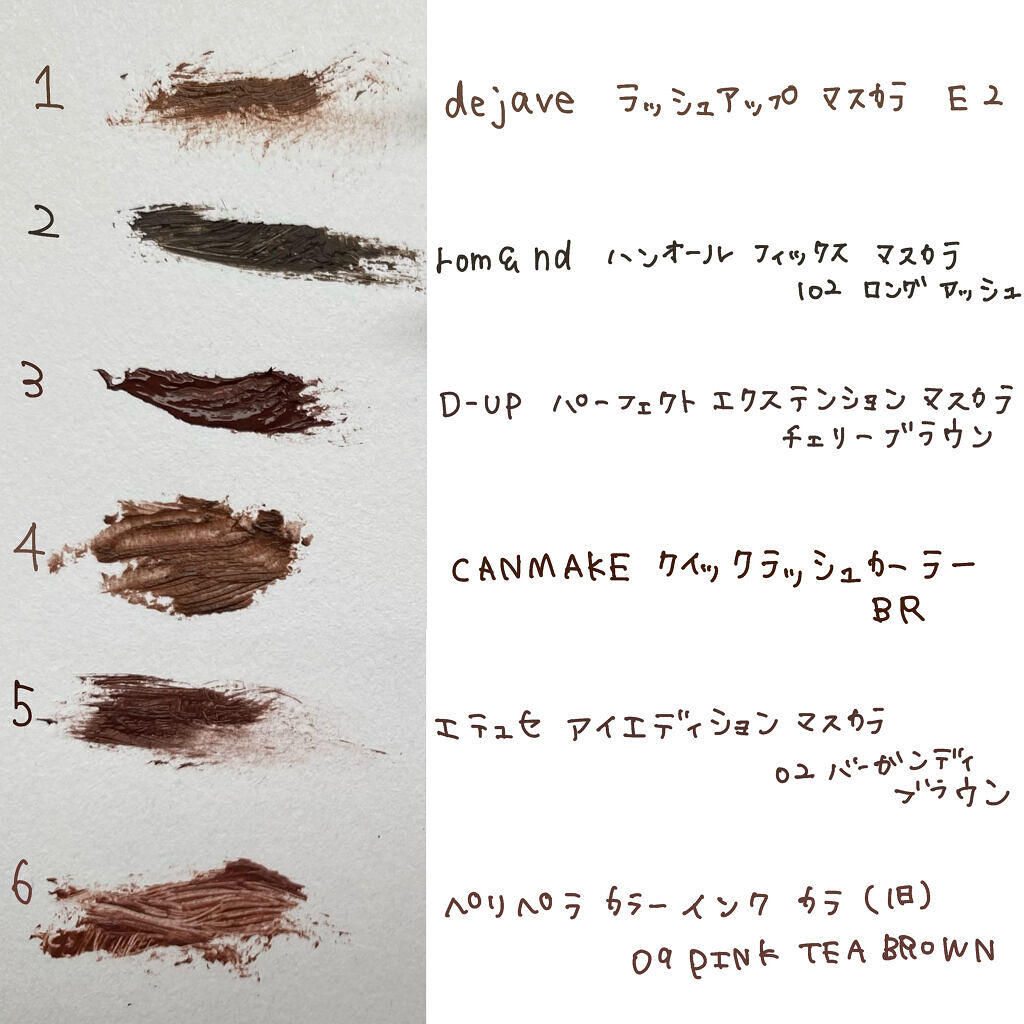 1 dejave ラッシュアップ マスカラ E2
2 rom&nd ハンオール フィックス マスカラ
102 ロングアッシュ
3 D-UP パーフェクト エクステンション マスカラ
チェリーブラウン
4 CANMAKE クイックラッシュカーラー
BR
5 エテュセ アイエディション マスカラ
02 バーガンディ
ブラウン
6 ペリペラ カラーインク カラ (旧)
09 PINK TEA BROWN